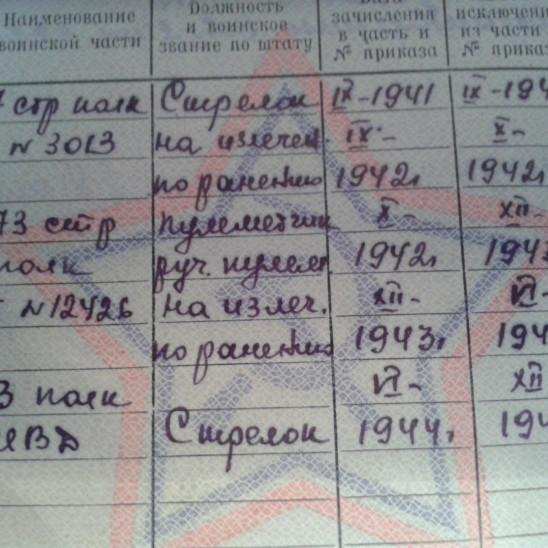 Наименование воинской части
Должность и воинское звание по штату
зачисления в часть и № приказа
из части
стр полк Стрелок IX-1941 IX-
№ 3013 на излечен. IX- X-
по ранению 1942г 1942г
73 стр пулеметчик X- XII-
полк руч. пулем 1942г
№ 12426 на излеч. XII- VI-
по ранению 1943г
полк VI- XII
Стрелок 1944г